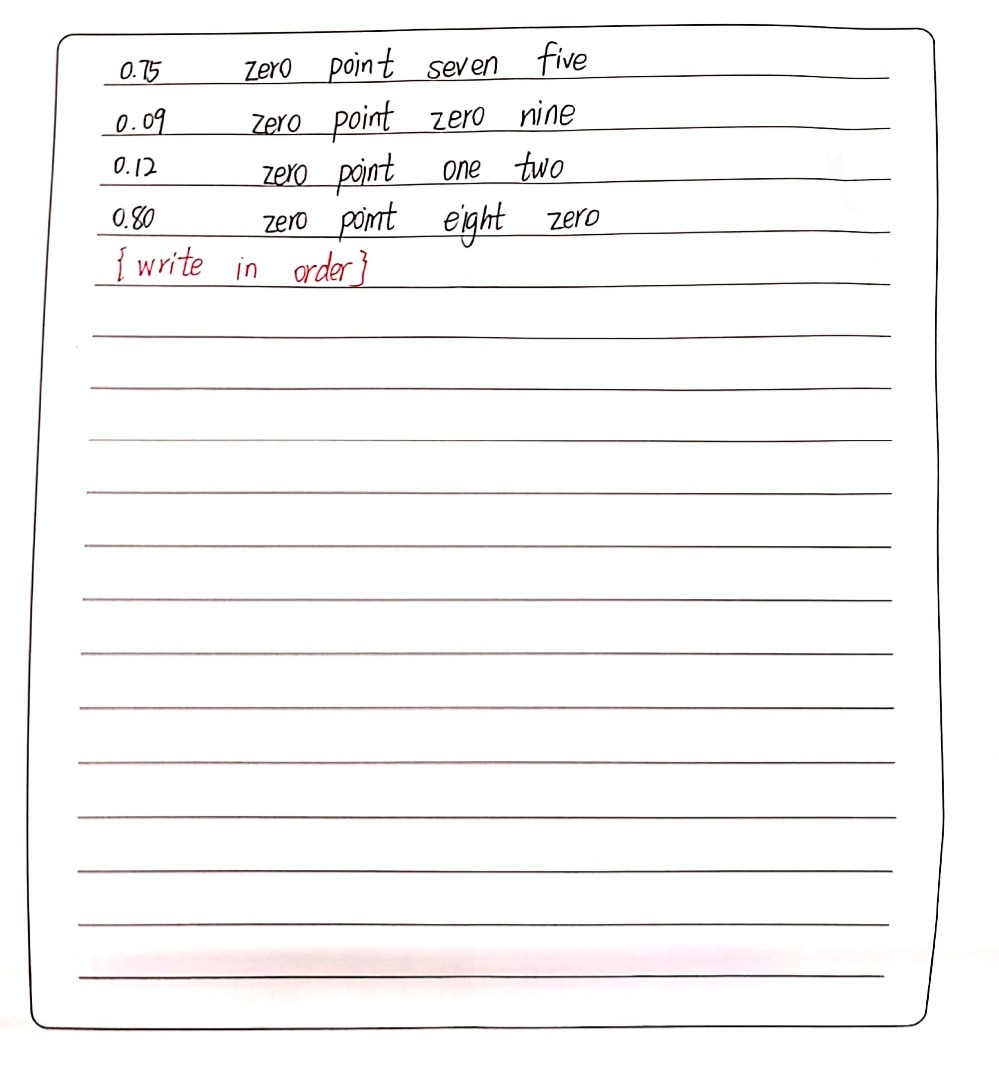 0.75 zero point seven five
0.09 zero point zero nine
0.12 zero point one two
0.80 zero point eight zero
{write in order}